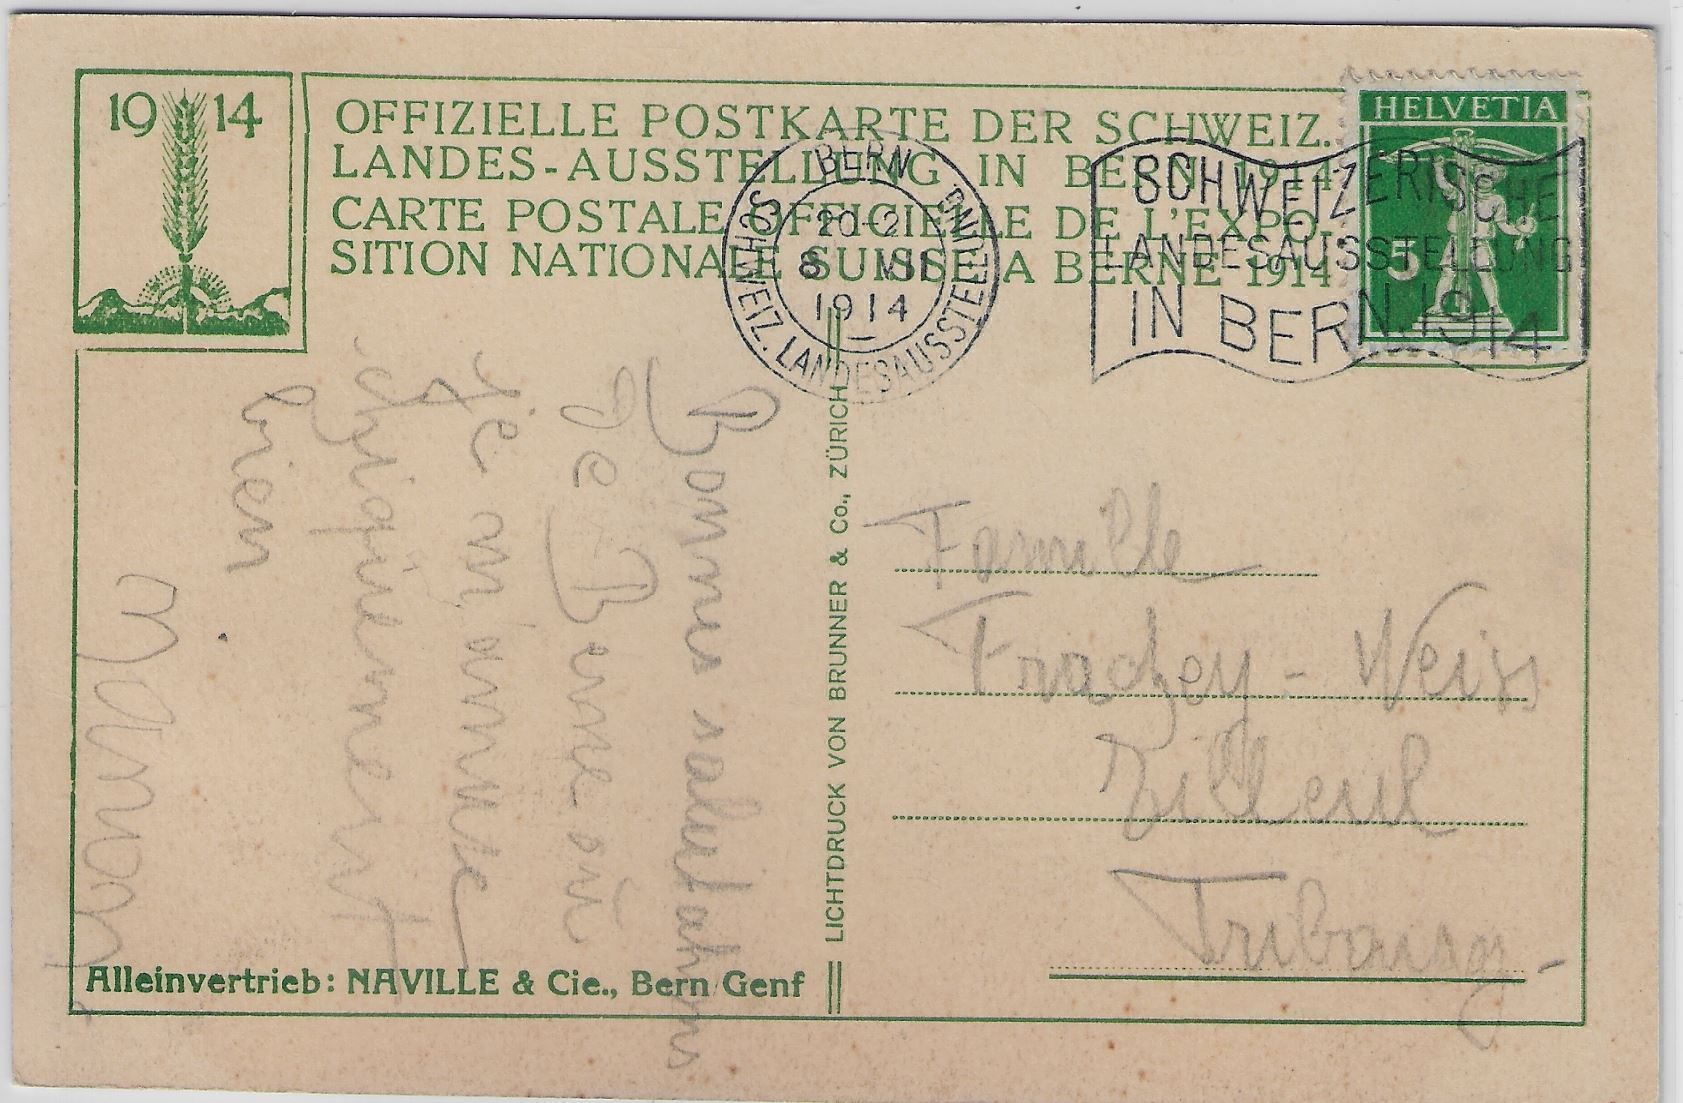 1914
OFFIZIELLE POSTKARTE DER SCHWEIZ.
LANDES-AUSSTELLUNG IN BERN 1914
CARTE POSTALE OFFICIELLE DE L'EXPO-
SITION NATIONALE SUISSE A BERNE 1914
BERN
SCHWEIZ. LANDESAUSSTELLUNG
20-21
8 VII
1914
SCHWEIZERISCHE
LANDESAUSSTELLUNG
IN BERN.1914
HELVETIA
5
Bonnes salutations
de Berne où
je m'annuie
bien
LICHTDRUCK VON BRUNNER & Co., ZÜRICH
Famille
Weiss
Fribourg
Alleinvertrieb: NAVILLE & Cie., Bern Genf